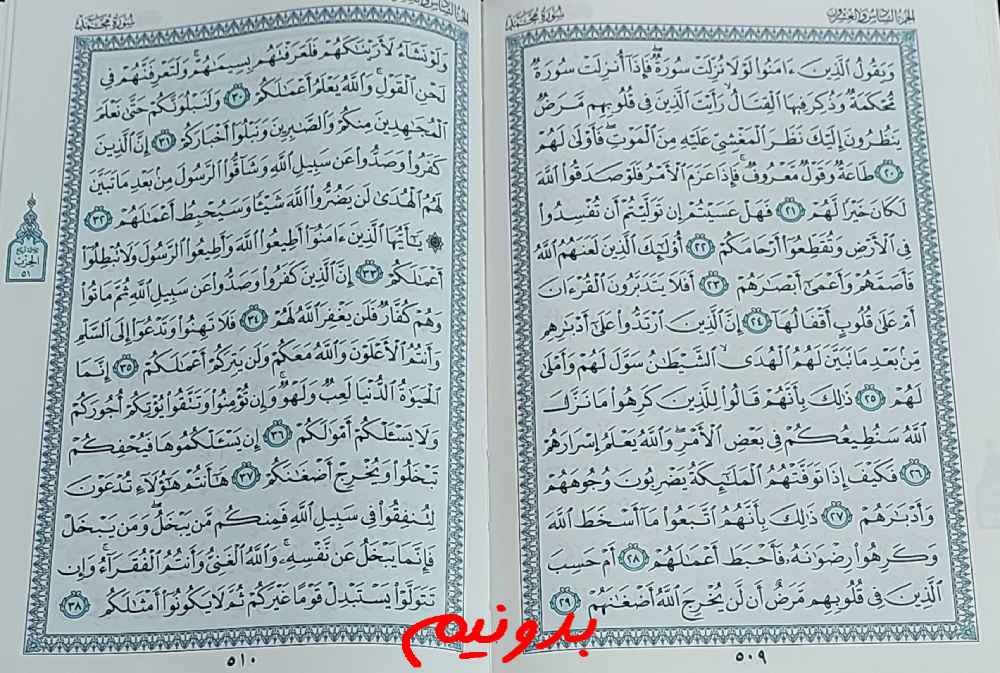 الجزء السادس والعشرون
سورة محمد
وَيَقُولُ الَّذِينَ ءَامَنُوا لَوْلَا نُزِّلَتْ سُورَةٌ فَإِذَا أُنزِلَتْ سُورَةٌ
مُّحْكَمَةٌ وَذُكِرَ فِيهَا الْقِتَالُ رَأَيْتَ الَّذِينَ فِي قُلُوبِهِم مَّرَضٌ
يَنظُرُونَ إِلَيْكَ نَظَرَ الْمَغْشِيِّ عَلَيْهِ مِنَ الْمَوْتِ فَأَوْلَىٰ لَهُمْ
٢٠ طَاعَةٌ وَقَوْلٌ مَّعْرُوفٌ فَإِذَا عَزَمَ الْأَمْرُ فَلَوْ صَدَقُوا اللَّهَ
لَكَانَ خَيْرًا لَّهُمْ ٢١ فَهَلْ عَسَيْتُمْ إِن تَوَلَّيْتُمْ أَن تُفْسِدُوا
فِي الْأَرْضِ وَتُقَطِّعُوا أَرْحَامَكُمْ ٢٢ أُولَٰئِكَ الَّذِينَ لَعَنَهُمُ اللَّهُ
فَأَصَمَّهُمْ وَأَعْمَىٰ أَبْصَارَهُمْ ٢٣ أَفَلَا يَتَدَبَّرُونَ الْقُرْءَانَ
أَمْ عَلَىٰ قُلُوبٍ أَقْفَالُهَا ٢٤ إِنَّ الَّذِينَ ارْتَدُّوا عَلَىٰ أَدْبَارِهِم
مِّن بَعْدِ مَا تَبَيَّنَ لَهُمُ الْهُدَى الشَّيْطَانُ سَوَّلَ لَهُمْ وَأَمْلَىٰ
لَهُمْ ٢٥ ذَٰلِكَ بِأَنَّهُمْ قَالُوا لِلَّذِينَ كَرِهُوا مَا نَزَّلَ
اللَّهُ سَنُطِيعُكُمْ فِي بَعْضِ الْأَمْرِ وَاللَّهُ يَعْلَمُ إِسْرَارَهُمْ
٢٦ فَكَيْفَ إِذَا تَوَفَّتْهُمُ الْمَلَائِكَةُ يَضْرِبُونَ وُجُوهَهُمْ
وَأَدْبَارَهُمْ ٢٧ ذَٰلِكَ بِأَنَّهُمُ اتَّبَعُوا مَا أَسْخَطَ اللَّهَ
وَكَرِهُوا رِضْوَانَهُ فَأَحْبَطَ أَعْمَالَهُمْ ٢٨ أَمْ حَسِبَ
الَّذِينَ فِي قُلُوبِهِم مَّرَضٌ أَن لَّن يُخْرِجَ اللَّهُ أَضْغَانَهُمْ ٢٩
٥٠٩
الجزء السادس والعشرون
سورة محمد
وَلَوْ نَشَاءُ لَأَرَيْنَاكَهُمْ فَلَعَرَفْتَهُم بِسِيمَاهُمْ وَلَتَعْرِفَنَّهُمْ فِي
لَحْنِ الْقَوْلِ وَاللَّهُ يَعْلَمُ أَعْمَالَكُمْ ٣٠ وَلَنَبْلُوَنَّكُمْ حَتَّىٰ نَعْلَمَ
الْمُجَاهِدِينَ مِنكُمْ وَالصَّابِرِينَ وَنَبْلُوَا أَخْبَارَكُمْ ٣١ إِنَّ الَّذِينَ
كَفَرُوا وَصَدُّوا عَن سَبِيلِ اللَّهِ وَشَاقُّوا الرَّسُولَ مِن بَعْدِ مَا تَبَيَّنَ
لَهُمُ الْهُدَىٰ لَن يَضُرُّوا اللَّهَ شَيْئًا وَسَيُحْبِطُ أَعْمَالَهُمْ ٣٢
۞ يَا أَيُّهَا الَّذِينَ ءَامَنُوا أَطِيعُوا اللَّهَ وَأَطِيعُوا الرَّسُولَ وَلَا تُبْطِلُوا
أَعْمَالَكُمْ ٣٣ إِنَّ الَّذِينَ كَفَرُوا وَصَدُّوا عَن سَبِيلِ اللَّهِ ثُمَّ مَاتُوا
وَهُمْ كُفَّارٌ فَلَن يَغْفِرَ اللَّهُ لَهُمْ ٣٤ فَلَا تَهِنُوا وَتَدْعُوا إِلَى السَّلْمِ
وَأَنتُمُ الْأَعْلَوْنَ وَاللَّهُ مَعَكُمْ وَلَن يَتِرَكُمْ أَعْمَالَكُمْ ٣٥ إِنَّمَا
الْحَيَوٰةُ الدُّنْيَا لَعِبٌ وَلَهْوٌ وَإِن تُؤْمِنُوا وَتَتَّقُوا يُؤْتِكُمْ أُجُورَكُمْ
وَلَا يَسْئَلْكُمْ أَمْوَالَكُمْ ٣٦ إِن يَسْئَلْكُمُوهَا فَيُحْفِكُمْ
تَبْخَلُوا وَيُخْرِجْ أَضْغَانَكُمْ ٣٧ هَا أَنتُمْ هَٰؤُلَاءِ تُدْعَوْنَ
لِتُنفِقُوا فِي سَبِيلِ اللَّهِ فَمِنكُم مَّن يَبْخَلُ وَمَن يَبْخَلْ
فَإِنَّمَا يَبْخَلُ عَن نَّفْسِهِ وَاللَّهُ الْغَنِيُّ وَأَنتُمُ الْفُقَرَاءُ وَإِن
تَتَوَلَّوْا يَسْتَبْدِلْ قَوْمًا غَيْرَكُمْ ثُمَّ لَا يَكُونُوا أَمْثَالَكُم ٣٨
الحزب
٥١
٥١٠
بدونیم